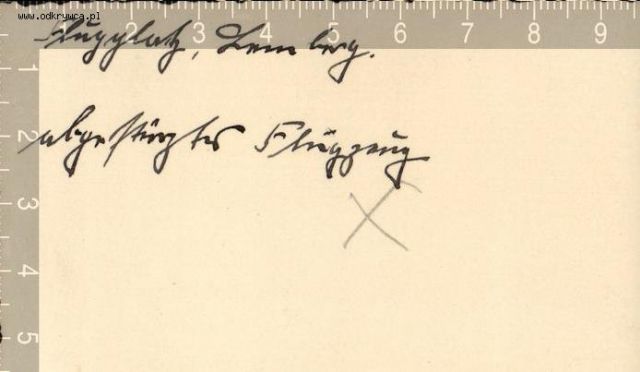 www.odkrywca.pl
Flugplatz, Lemberg.
abgestürztes Flugzeug
1 2 3 4 5 6 7 8 9
1
2
3
4
5